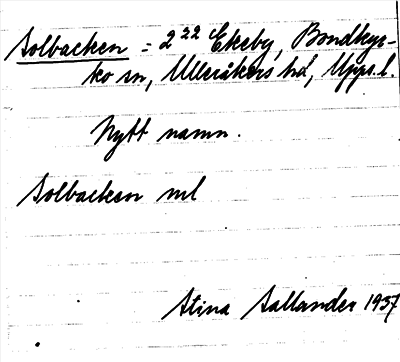 Solbacken = 2²² Ekeby, Bondkyr-
ko sn, Ulleråkers hd, Upps. l.
Nytt namn.
Solbacken ml
Stina Sallander 1937